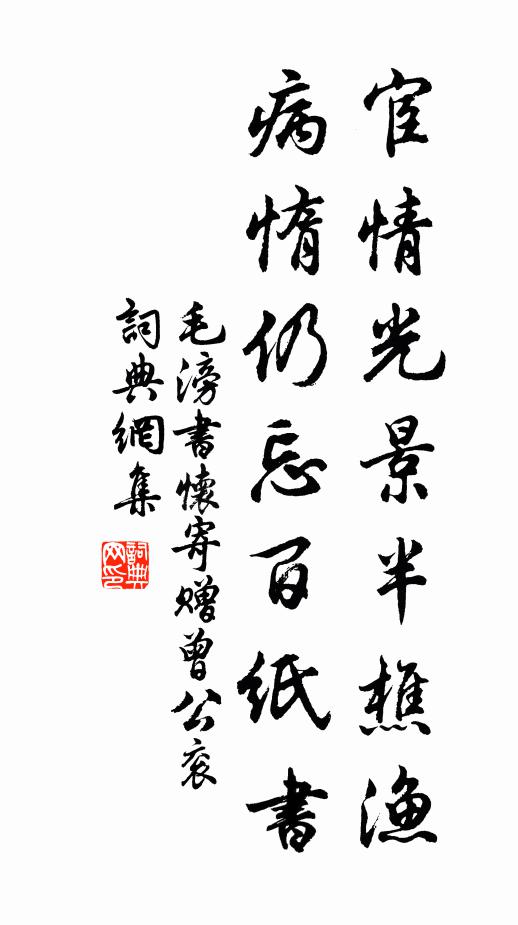 宦情光景半樵漁
病惰仍忘百紙書
毛滂書懷寄贈曾公袞
詞典網集
詞典网印